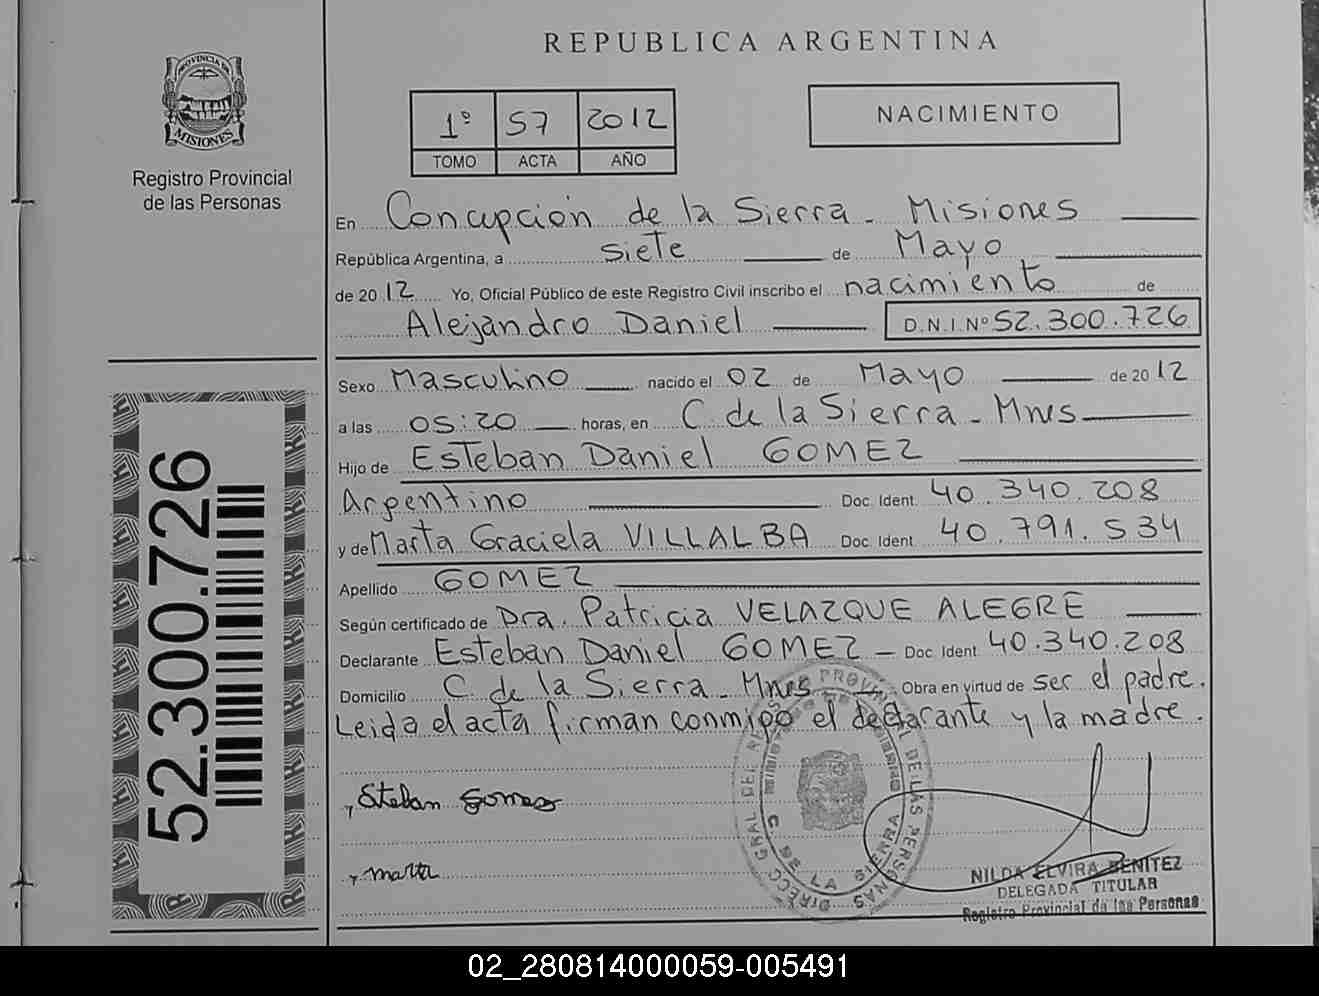 REPUBLICA ARGENTINA
PROVINCIA DE
MISIONES
Registro Provincial
de las Personas
1º 57 2012
TOMO ACTA AÑO
NACIMIENTO
En Concepción de la Sierra - Misiones
República Argentina, a siete de Mayo
de 2012 Yo, Oficial Público de este Registro Civil inscribo el nacimiento de
Alejandro Daniel D.N.I.Nº 52.300.726
Sexo Masculino nacido el 02 de Mayo de 2012
a las 05:20 horas, en C. de la Sierra - Mnes
Hijo de Esteban Daniel GOMEZ
Argentino Doc. Ident. 40.340.208
y de Marta Graciela VILLALBA Doc. Ident. 40.791.534
Apellido GOMEZ
Según certificado de Dra. Patricia VELAZQUE ALEGRE
Declarante Esteban Daniel GOMEZ - Doc. Ident. 40.340.208
Domicilio C. de la Sierra - Mnes - Obra en virtud de ser el padre.
Leida el acta firman conmigo el declarante y la madre.
52.300.726
Steban gomez
marta
DIRECC. GRAL. DEL REG. PROVINCIAL DE LAS PERSONAS
C. DE LA SIERRA
NILDA ELVIRA BENITEZ
DELEGADA TITULAR
Registro Provincial de las Personas
02_280814000059-005491